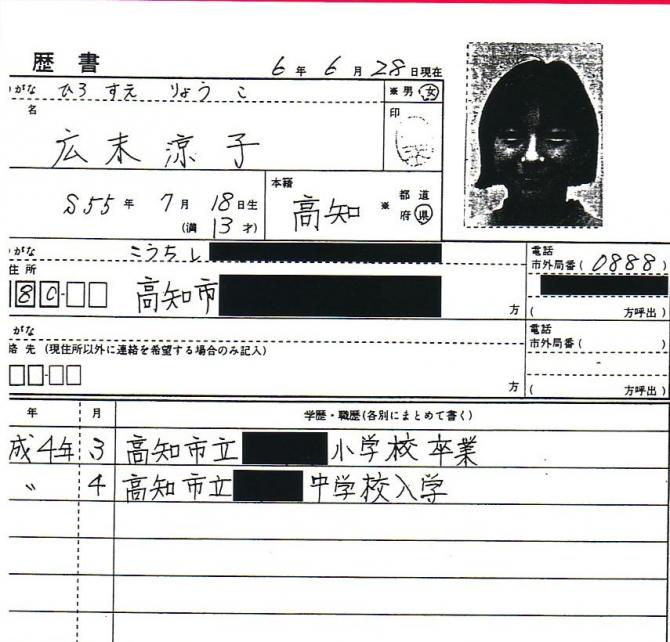 歴書
6年6月28日現在
がな ひろ すえ りょう こ
※男・女
名
印
広末 涼子
S55年7月18日生
(満13才)
本籍
高知
※
都道
府県
がな こうちし
電話
市外局番(0888)
住所
180-
高知市
方
(方呼出)
がな
電話
絡先 (現住所以外に連絡を希望する場合のみ記入)
市外局番(
方
(方呼出)
年 月 学歴・職歴(各別にまとめて書く)
成4年 3 高知市立 小学校 卒業
〃 4 高知市立 中学校入学